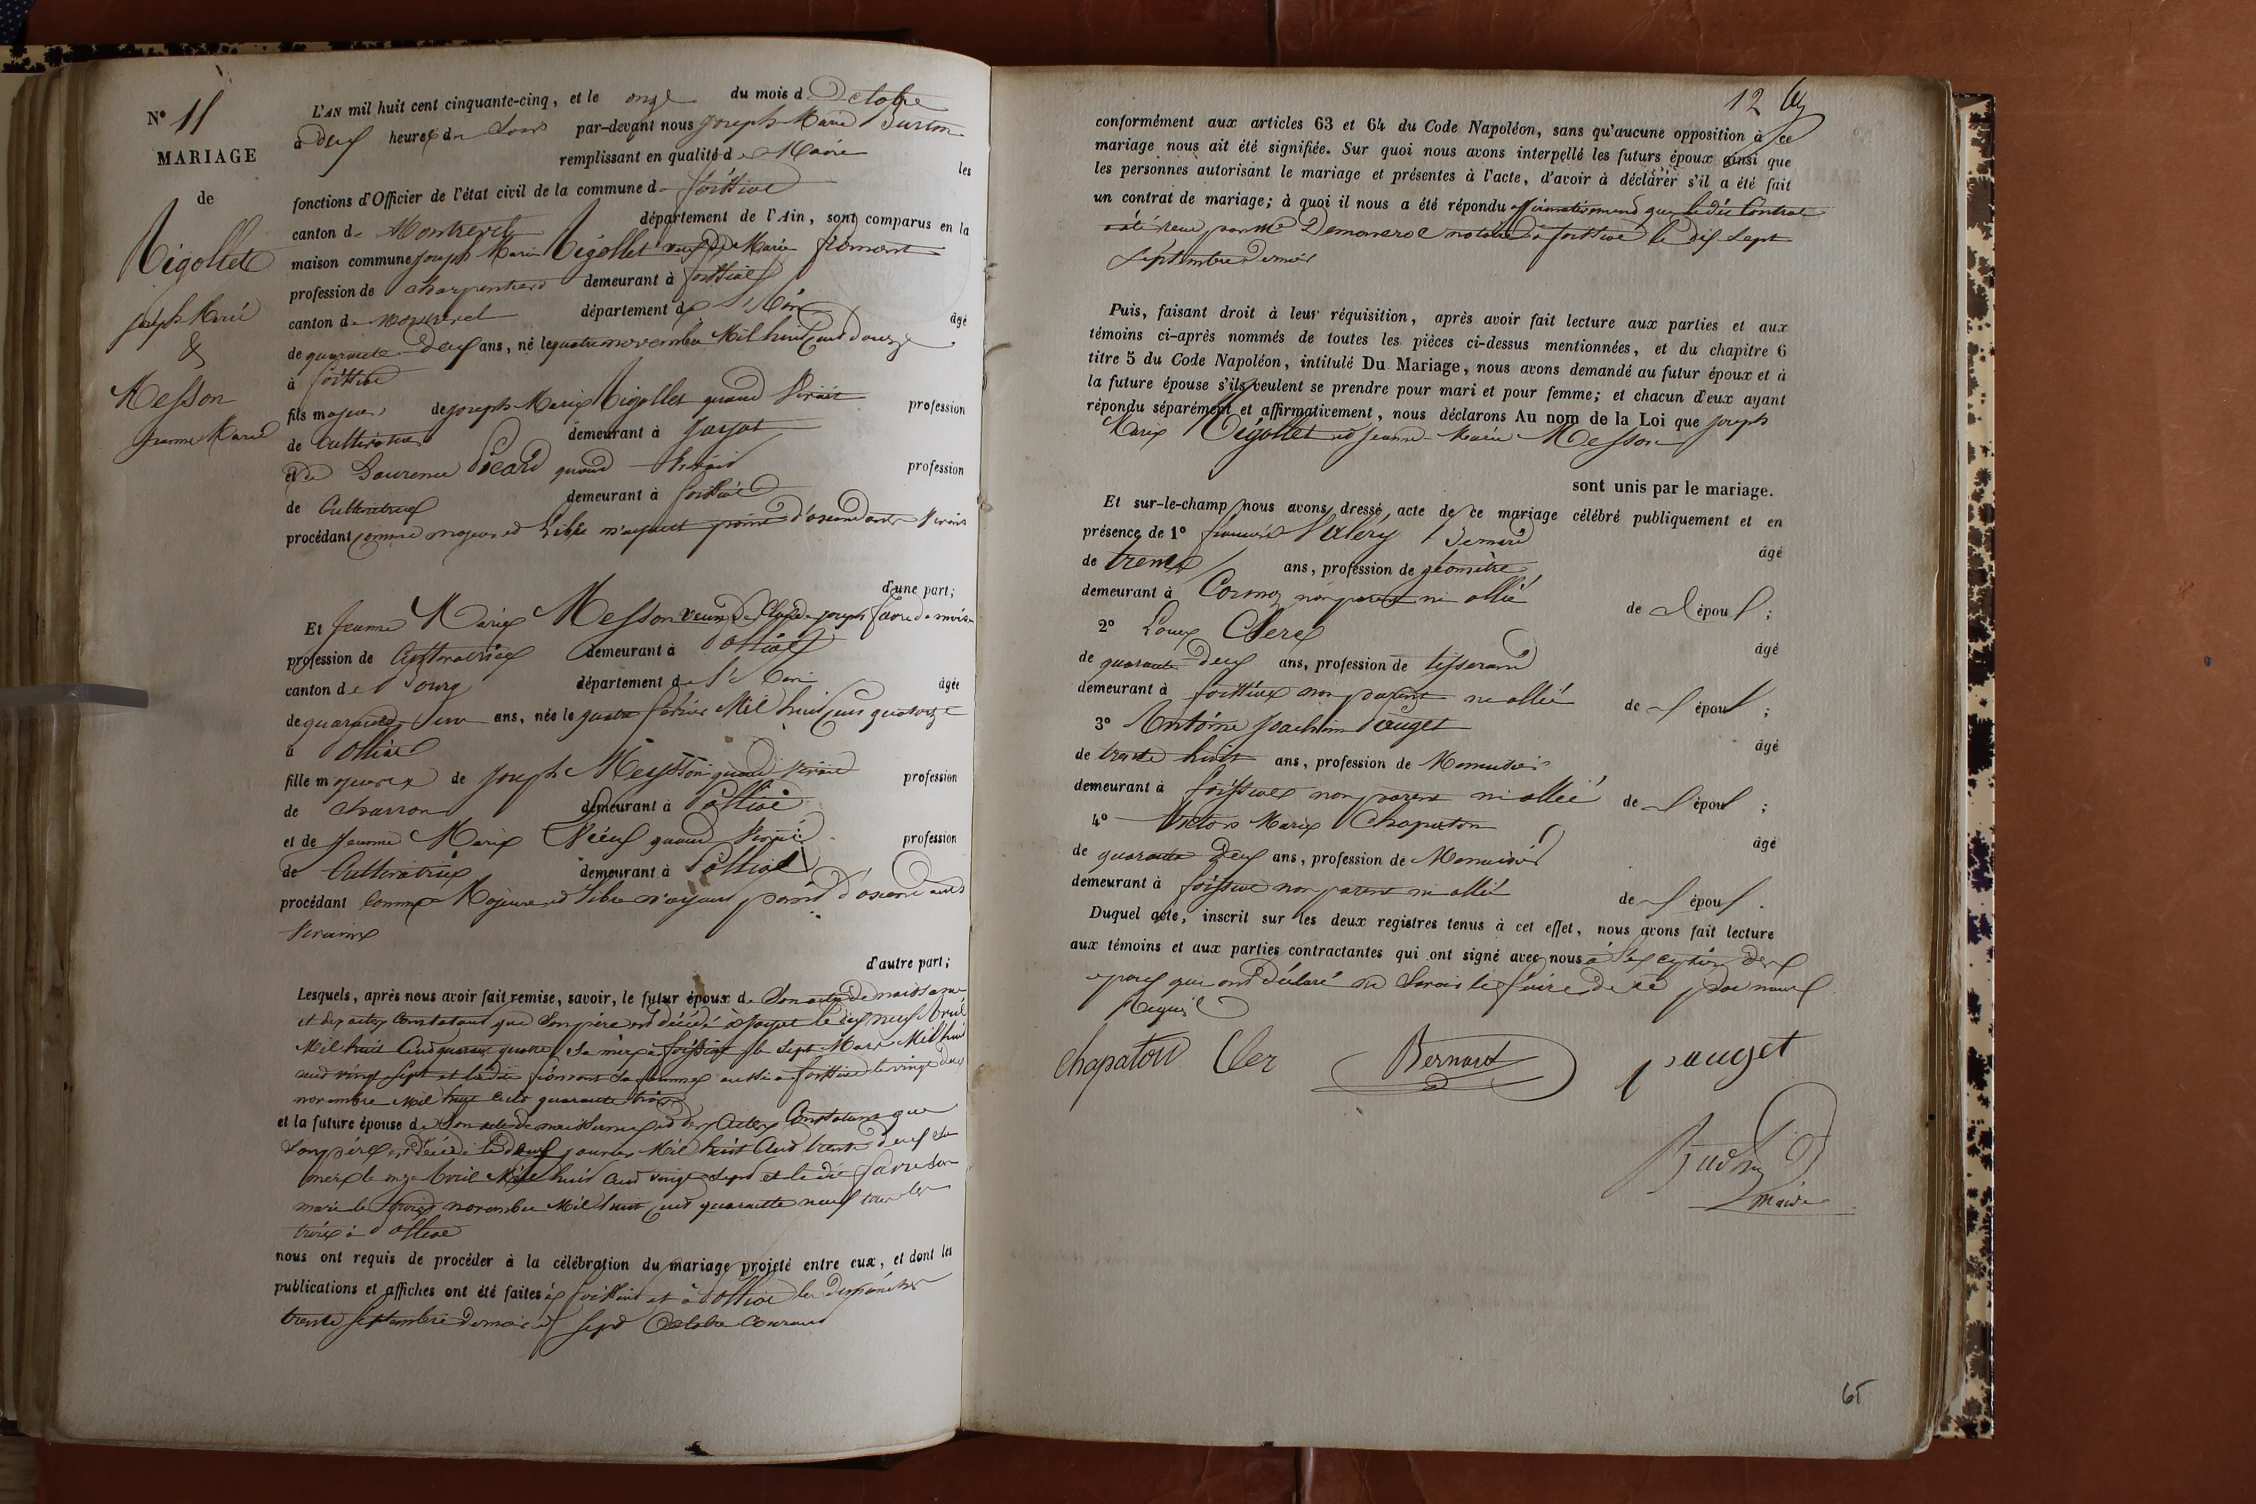 N° 11
MARIAGE
de
Rigollet
Joseph Marie
&
Messon
Jeanne Marie
L'AN mil huit cent cinquante-cinq, et le onze du mois d'Octobre
à deux heures du Soir par-devant nous Joseph Marie
remplissant en qualité de Maire les
fonctions d'Officier de l'état civil de la commune de foissiat
canton de Montrevel département de l'Ain, sont comparus en la
maison commune Joseph Marie Rigollet veuf de Marie fromont
profession de charpentier demeurant à foissiat
canton de Montrevel département de l'Ain âgé
de quarante deux ans, né le quatre novembre Mil huit cent douze
à foissiat
fils majeur de Joseph Marie Rigollet quand vivait profession
de Cultivateur demeurant à Jayat
et de Laurence Picard quand vivait profession
de Cultivatrice demeurant à foissiat
procédant comme majeur et Libre n'ayant point d'ascendants vivants
d'une part;
Et Jeanne Marie Messon veuve de Claude Joseph favre
profession de Cultivatrice demeurant à Polliat
canton de Bourg département de l'Ain âgée
de quarante un ans, née le quatre février Mil huit cent quatorze
à Polliat
fille majeure de Joseph Messon quand vivait profession
de charron demeurant à Polliat
et de Jeanne Marie quand vivait profession
de Cultivatrice demeurant à Polliat
procédant comme Majeure et Libre n'ayant point d'ascendants
vivants
d'autre part;
Lesquels, après nous avoir fait remise, savoir, le futur époux de Son acte de naissance
et des actes Constatant que Son père est décédé à Jayat le dix neuf Avril
Mil huit Cent quarante quatre, Sa mère à foissiat le Sept Mars Mil huit
cent vingt Sept et la dite fromont Sa femme aussi à foissiat le vingt deux
novembre Mil huit Cent quarante trois
et la future épouse de Son acte de naissance et des Actes Constatant que
Son père est décédé le deux janvier Mil huit Cent trente deux Sa
mère le onze Avril Mil huit Cent vingt Sept et le dit favre Son
mari le novembre Mil huit Cent quarante neuf tous les
trois à Polliat
nous ont requis de procéder à la célébration du mariage projeté entre eux, et dont les
publications et affiches ont été faites à foissiat et à Polliat les dimanches
trente Septembre dernier et Sept Octobre Courant
12
conformément aux articles 63 et 64 du Code Napoléon, sans qu'aucune opposition à ce
mariage nous ait été signifiée. Sur quoi nous avons interpellé les futurs époux ainsi que
les personnes autorisant le mariage et présentes à l'acte, d'avoir à déclarer s'il a été fait
un contrat de mariage; à quoi il nous a été répondu affirmativement que le dit Contrat
a été reçu par Me notaire à foissiat le dix Sept
Septembre dernier
Puis, faisant droit à leur réquisition, après avoir fait lecture aux parties et aux
témoins ci-après nommés de toutes les pièces ci-dessus mentionnées, et du chapitre 6
titre 5 du Code Napoléon, intitulé Du Mariage, nous avons demandé au futur époux et à
la future épouse s'ils veulent se prendre pour mari et pour femme; et chacun d'eux ayant
répondu séparément et affirmativement, nous déclarons Au nom de la Loi que Joseph
Marie Rigollet et Jeanne Marie Messon
sont unis par le mariage.
Et sur-le-champ nous avons dressé acte de ce mariage célébré publiquement et en
présence de 1° Valéry Bernard âgé
de trente ans, profession de géomètre
demeurant à Cormoz non parent ni allié de l'époux;
2° Louis Clerc âgé
de quarante deux ans, profession de tisserand
demeurant à foissiat non parent ni allié de l'époux;
3° Antoine Joachim Pauget âgé
de trente huit ans, profession de Menuisier
demeurant à foissiat non parent ni allié de l'époux;
4° Victor Marie Chapaton âgé
de quarante deux ans, profession de Menuisier
demeurant à foissiat non parent ni allié de l'époux.
Duquel acte, inscrit sur les deux registres tenus à cet effet, nous avons fait lecture
aux témoins et aux parties contractantes qui ont signé avec nous à l'exception des
époux qui ont déclaré ne Savoir le faire de ce par nous
Requis
Chapaton Cler Bernard Pauget
maire
65